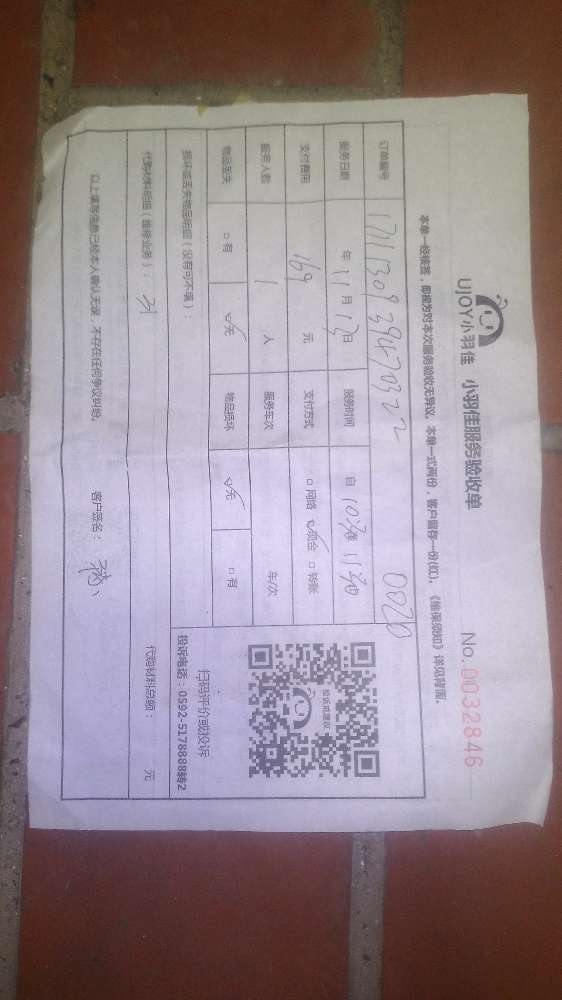 UJOY小羽佳 小羽佳服务验收单 No. 0032846
本单一经核签，即视为对本次服务验收无异议。本单一式两份，客户留存一份(红)。《维保须知》详见背面。
订单编号 17113093947032 0020
服务日期 年 11 月 13 日 服务时间 自 10:30 至 11:30
支付费用 169 元 支付方式 □网络 ☑现金 □转账
服务人数 1 人 服务车次 车/次
物品丢失 □有 ☑无 物品损坏 ☑无 □有
损坏或丢失物品明细（没有可不填）：
投诉或建议
扫码评价或投诉
投诉电话：0592-5178888转2
代购材料明细（维修业务）： 代购材料总额： 元
以上填写信息已经本人确认无误，不存在任何争议纠纷。 客户签名：